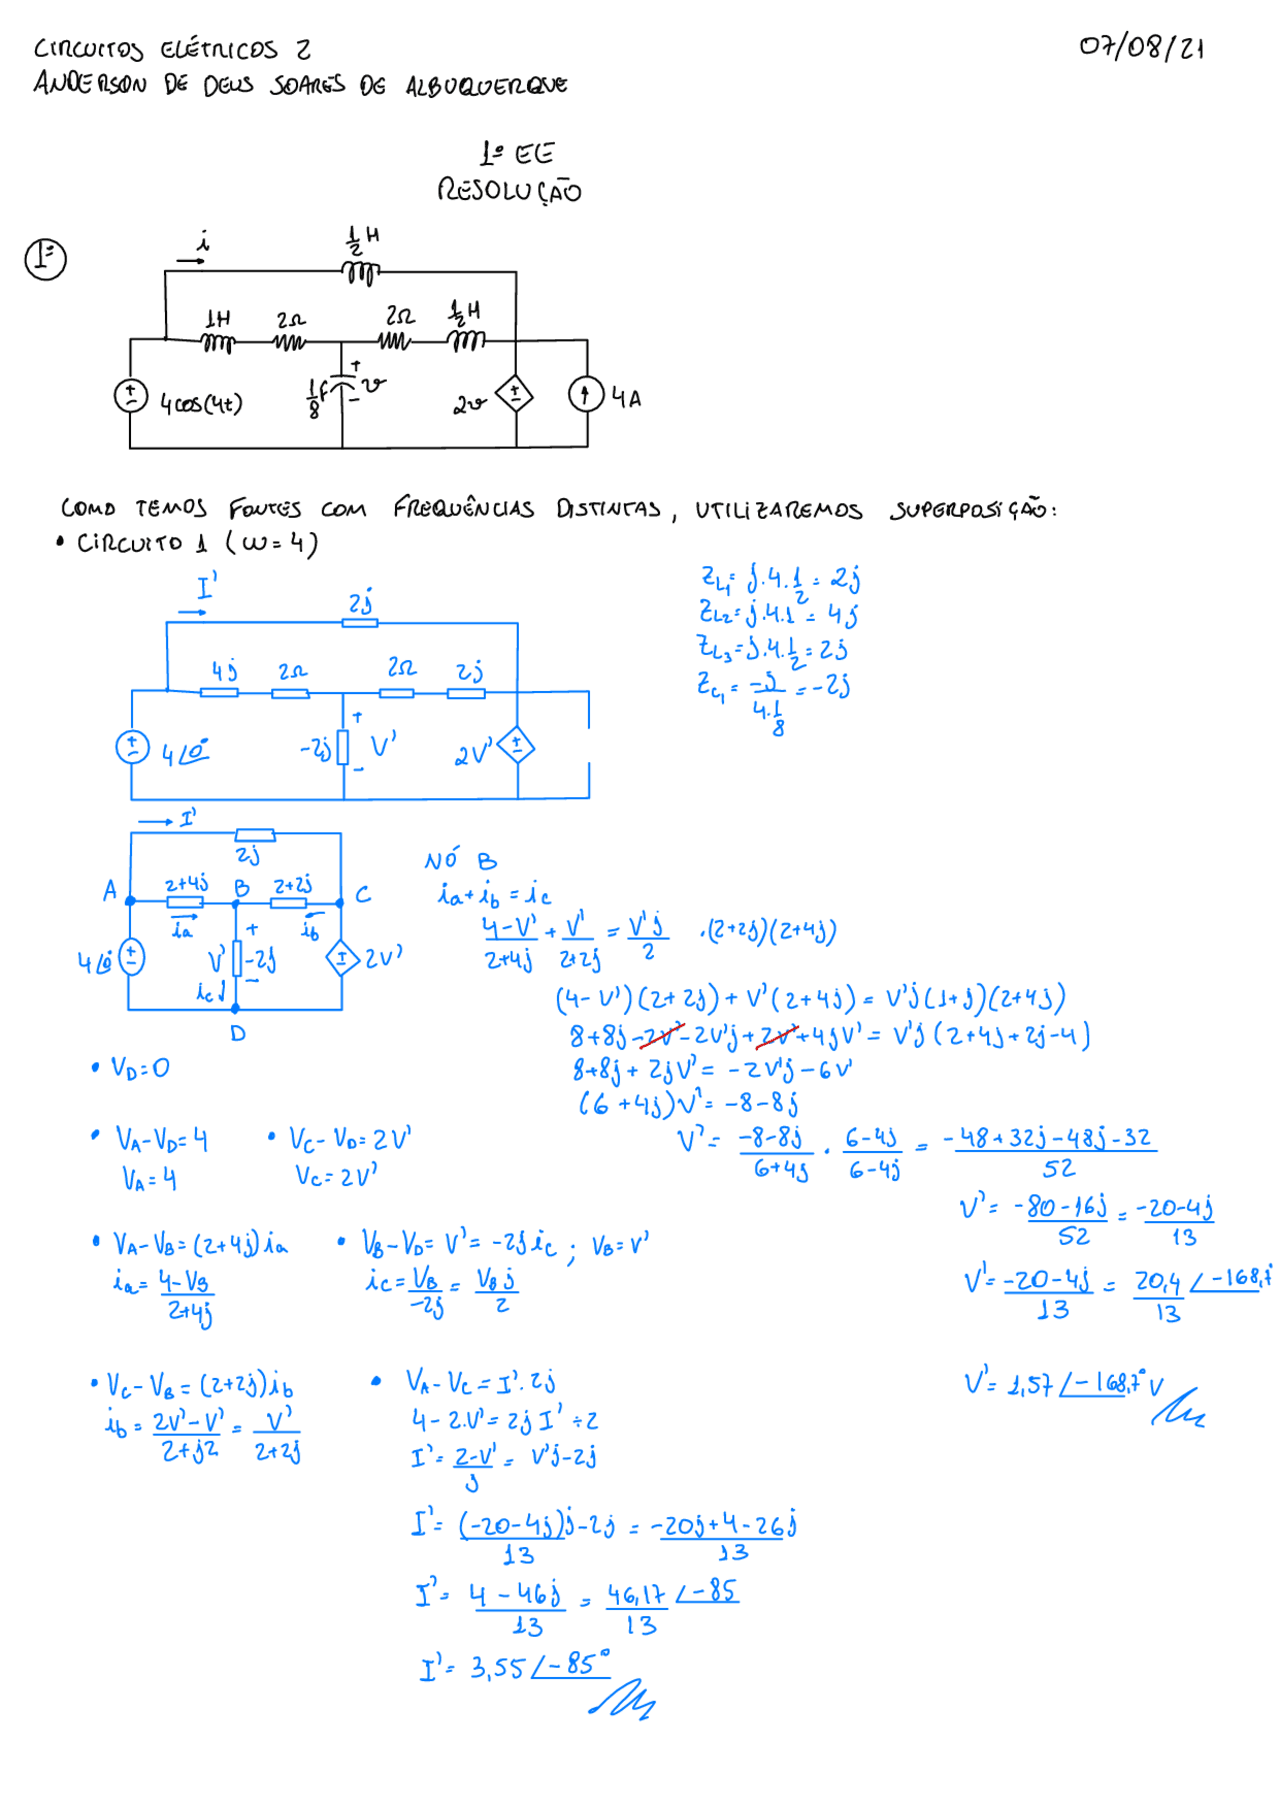 CIRCUITOS ELÉTRICOS 2
07/08/21
ANDERSON DE DEUS SOARES DE ALBUQUERQUE
1º EE
RESOLUÇÃO
1ª
i
1/2 H
1H 2Ω 2Ω 1/2 H
4cos(4t)
1/8 F
+ v -
2v
4A
COMO TEMOS FONTES COM FREQUÊNCIAS DISTINTAS, UTILIZAREMOS SUPERPOSIÇÃO:
• CIRCUITO 1 (ω=4)
I'
2j
4j 2Ω 2Ω 2j
4∠0°
-2j
+ V' -
2V'
ZL1 = j.4.1/2 = 2j
ZL2 = j.4.1 = 4j
ZL3 = j.4.1/2 = 2j
ZC1 = -j/(4.1/8) = -2j
I'
2j
A 2+4j B 2+2j C
ia ib
4∠0° V' -2j 2V'
ic
D
NÓ B
ia+ib = ic
(4-V')/(2+4j) + V'/(2+2j) = V'j/2 .(2+2j)(2+4j)
(4-V')(2+2j)+V'(2+4j) = V'j(1+j)(2+4j)
8+8j-2V'-2V'j+2V'+4jV' = V'j(2+4j+2j-4)
8+8j+2jV' = -2V'j-6V'
(6+4j)V' = -8-8j
V' = (-8-8j)/(6+4j) . (6-4j)/(6-4j) = (-48+32j-48j-32)/52
V' = (-80-16j)/52 = (-20-4j)/13
V' = (-20-4j)/13 = 20,4/13 ∠-168,7°
V' = 1,57∠-168,7° V
• VD=0
• VA-VD=4 • VC-VD=2V'
VA=4 VC=2V'
• VA-VB=(2+4j)ia • VB-VD=V'=-2j ic; VB=V'
ia = (4-VB)/(2+4j) ic = VB/-2j = VB j/2
• VC-VB=(2+2j)ib • VA-VC=I'.2j
ib = (2V'-V')/(2+j2) = V'/(2+2j) 4-2.V'=2j I' ÷2
I' = (2-V')/j = V'j-2j
I' = (-20-4j)/13 j-2j = (-20j+4-26j)/13
I' = (4-46j)/13 = 46,17/13 ∠-85
I' = 3,55∠-85°